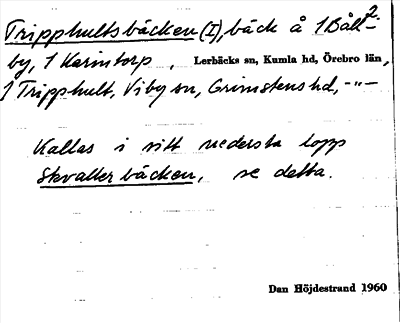 Tripphultsbäcken (I), bäck å 1 Båll-2
by, 1 Karintorp, Lerbäcks sn, Kumla hd, Örebro län,
1 Tripphult, Viby sn, Grimstens hd, -"-
Kallas i sitt nedersta lopp
Skvallerbäcken, se detta.
Dan Höjdestrand 1960